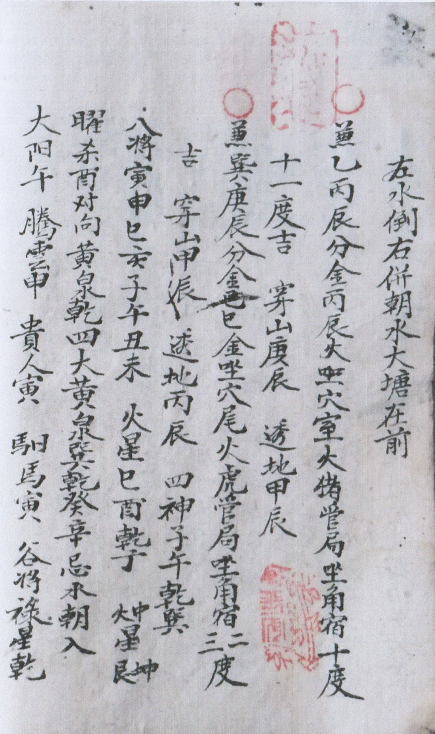 左水倒右併朝水大塘在前
兼乙丙辰分金丙辰火坐穴室火猪管局坐角宿十度
十一度吉 穿山庚辰 透地甲辰
兼巽庚辰分金巳金坐穴尾火虎管局坐角宿二三度
吉 穿山甲辰 透地丙辰 四神子午乾巽
八將寅申巳亥子午丑未 火星巳酉乾子 星坤艮
曜杀酉对向黄泉乾四大黄泉巽乾癸辛忌水朝入
大阳午 騰雲申 貴人寅 馹馬寅 谷将 祿星乾